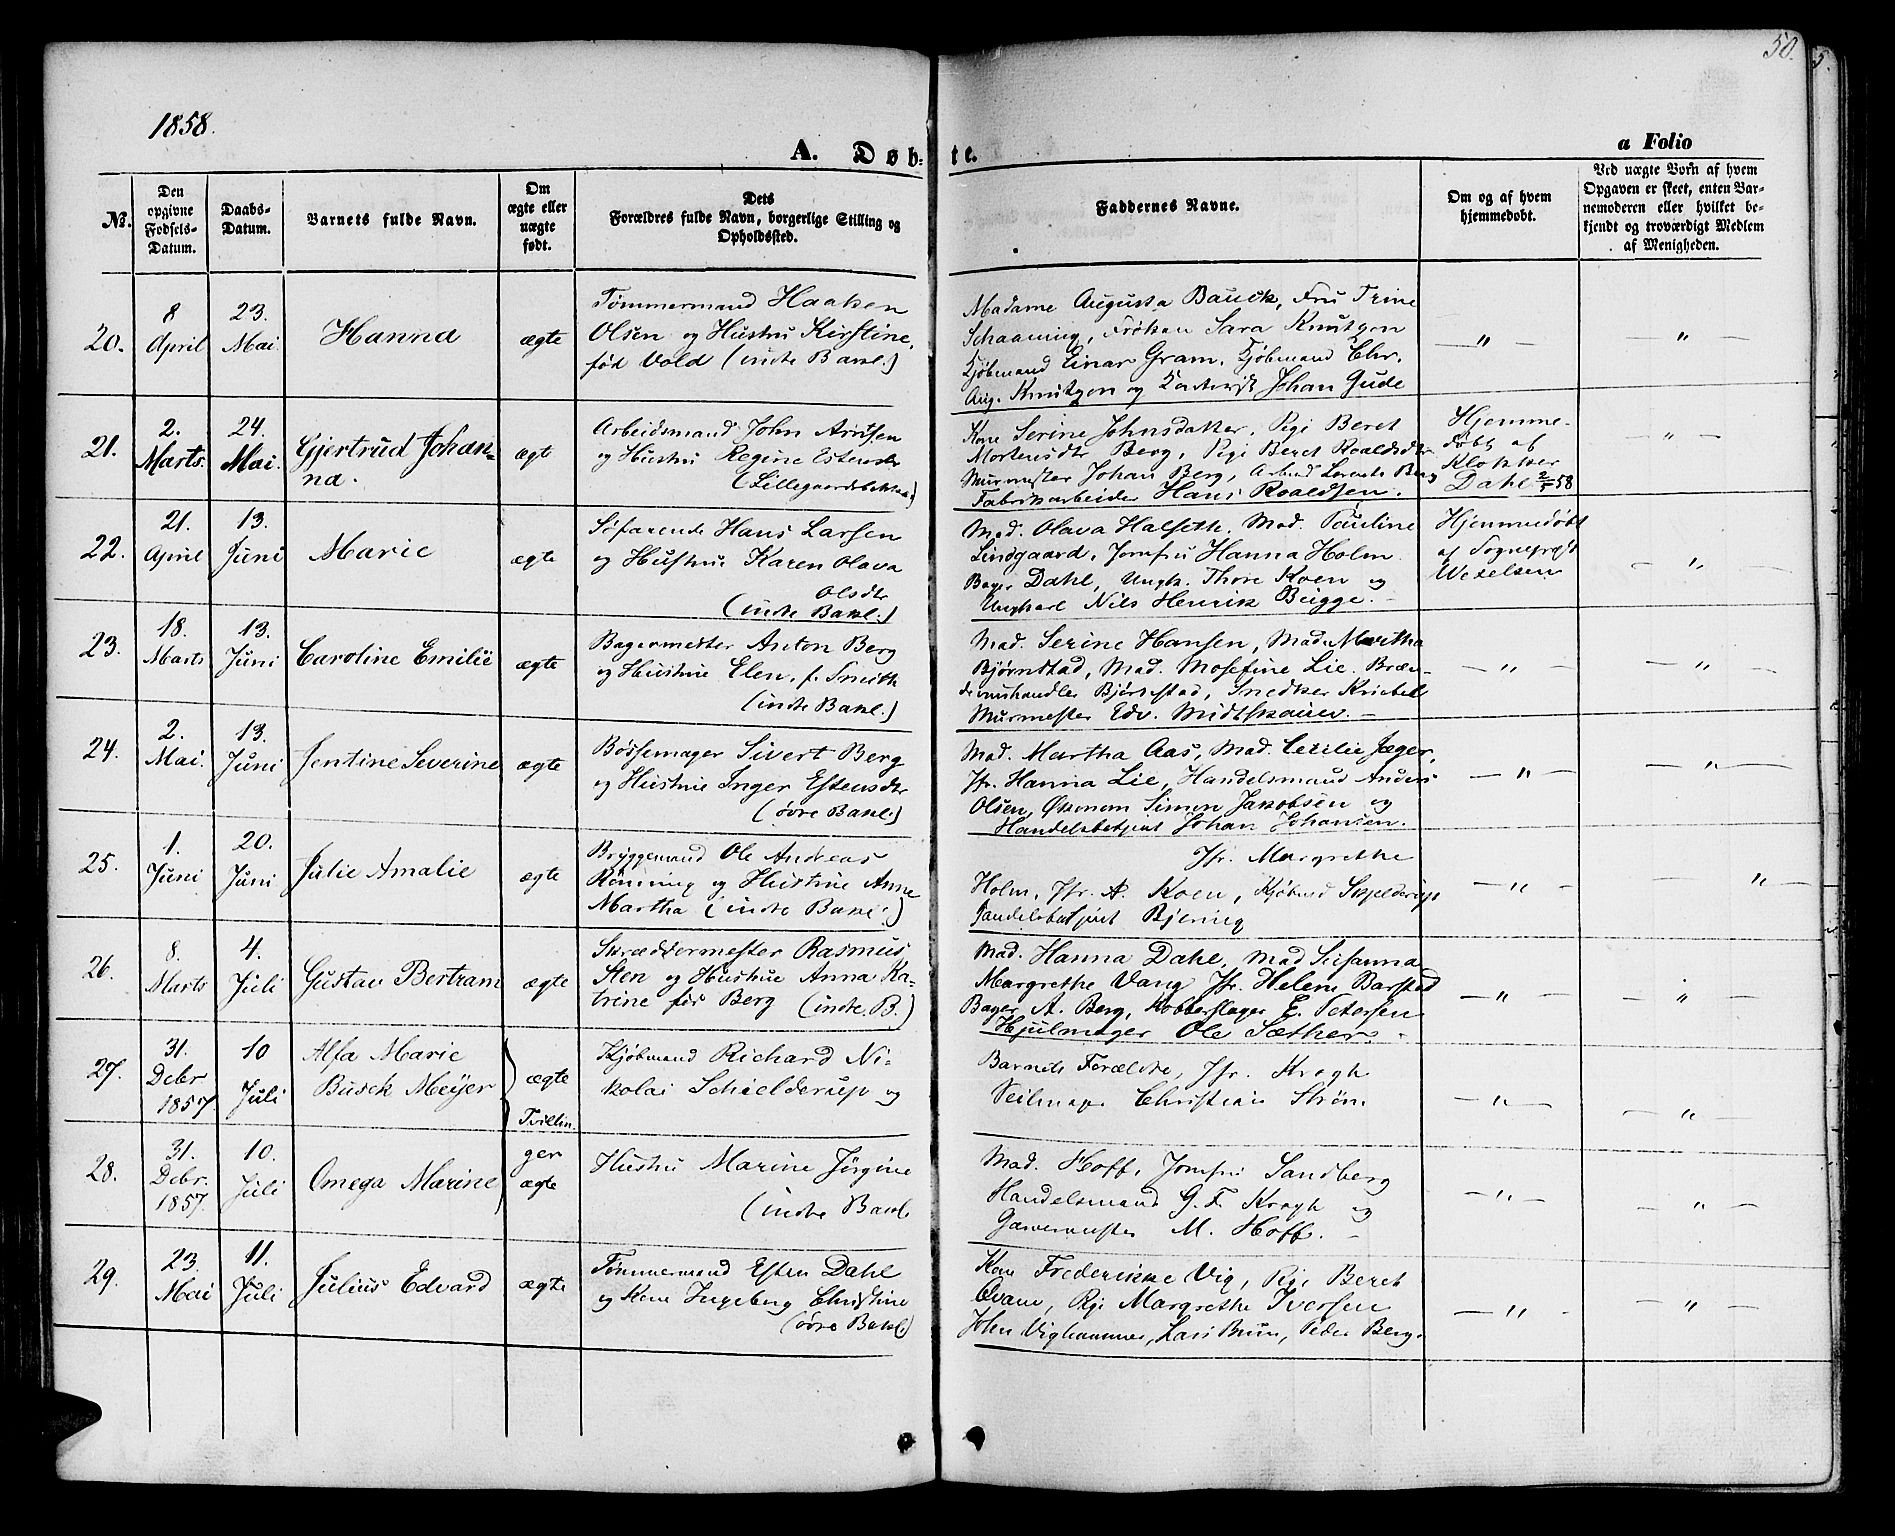 50.
5.
1858.
A. Døb-
te.
a Folio
No.
Den opgivne Fødsels-Datum.
Daabs-Datum.
Barnets fulde Navn.
Om ægte eller uægte født.
Dets Forældres fulde Navn, borgerlige Stilling og Opholdssted.
Faddernes Navne.
Om og af hvem hjemmedøbt.
Ved uægte Børn af hvem Opgaven er skeet, enten Barnemoderen eller hvilket bekjendt og troværdigt Medlem af Menigheden.
20.
8 April
23. Mai
Hanna
ægte
Tømmermand Haaken
Olsen og Hustru Kirstine,
fød Vold (indre Bakl.)
Madame Augusta Bauck, Fru Trine
Schaaning, Frøken Sara Knutzon
Kjøbmand Einar Gram, Kjøbmand Chr.
Aug. Knutzon og Johan Gude
— " —
— " —
21.
2. Marts.
24. Mai.
Gjertrud Johan-
na.
ægt
Arbeidsmand John Arntsen
og Hustru Regine Estensdr
(Lillegaardsbakken)
Kone Serine Johnsdatter, Pigi Beret
Mortensdtr Berg, Pigi Beret Roaldsdtr
Murmester Johan Berg, Arbmd Berg
Fabrikarbeider Hans Roaldsen.
Hjemme-
døbt af
Klokker
Dahl 2/5 58
— " —
22.
21. April
13. Juni
Marie
ægte
Søfarende Hans Larsen
og Hustrue Karen Olava
Olsdtr
(indre Bakl.)
Mad. Olava Halseth, Mad. Pauline
Lindgaard, Jomfru Hanna Holm
Bager Dahl, Ungk. Thore Koen og
Ungkarl Nils Henrik Bugge. —
Hjemmedøbt
af Sogneprest
Wexelsen
— " —
23.
18. Marts
13. Juni
Caroline Emilie
ægte
Bagermester Anton Berg
og Hustrue Elen, f. Smith
(indre Bakl.)
Mad. Serine Hansen, Mad. Martha
Bjørnstad, Mad. Josefine Lie, Bræn-
deviinshandler Bjørnstad, Snedker Kriebel
Murmester Edv. Midtskauen. —
— " —
— " —
24.
2. Mai.
13. Juni
Jentine Severine
ægte
Bøssemager Sivert Berg
og Hustrue Inger Estensdtr
(øvre Bakl.)
Mad. Martha Aas, Mad. Cecilie Jæger,
Jfr. Hanna Lie, Handelsmand Anders
Olsen, Økonom Simon Jakobsen og
Handelsbetjent Johan Johansen.
— " —
— " —
25.
1. Juni
20. Juni
Julie Amalie
ægte
Bryggemand Ole Andreas
Rønning og Hustrue Anne
Martha (indre Bakl.)
Jfr. Margrethe
Holm, Jfr. A. Koen, Kjøbmd Skjelderup
Handelsbetjent Bjering
— " —
"
26.
8. Marts
4. Juli
Gustav Bertram
ægte
Skræddermester Rasmus
Sten og Hustrue Anna Ka-
trine før Berg (indre B.)
Mad. Hanna Dahl, Mad Susanna
Margrethe Vang Jfr. Helene Barstad
Bager A. Berg, Kobberslager E. Petersen
Hjulmager Ole Sæther. -
— " —
— " —
27.
31. Debr 1857.
10 Juli
Alfa Marie
Busck Meyer
ægte
Tvillin
Kjøbmand Richard Ni-
kolai Schielderup og
Barnets Forældre, Jfr. Kragh
Seilmager Christian Strøm
— " —
— " —
28.
31. Debr. 1857.
10. Juli
Omega Marine
ger
ægte
Hustru Marine Jørgine
(indre Bakl.
Mad. Hoff, Jomfru Sandberg
Handelsmand G. F. Kragh og
Garvermester M. Hoff. —
— " —
— " —
29.
23. Mai
11. Juli
Julius Edvard
ægte
Tømmermand Esten Dahl
og Kone Ingeborg Christine
(øvre Bakl.)
Kone Frederikke Vig, Pige Beret
Qvam, Pige Margrethe Iversen
John Vighammer, Lars Bruun, Peder Berg.
— " —
— " —